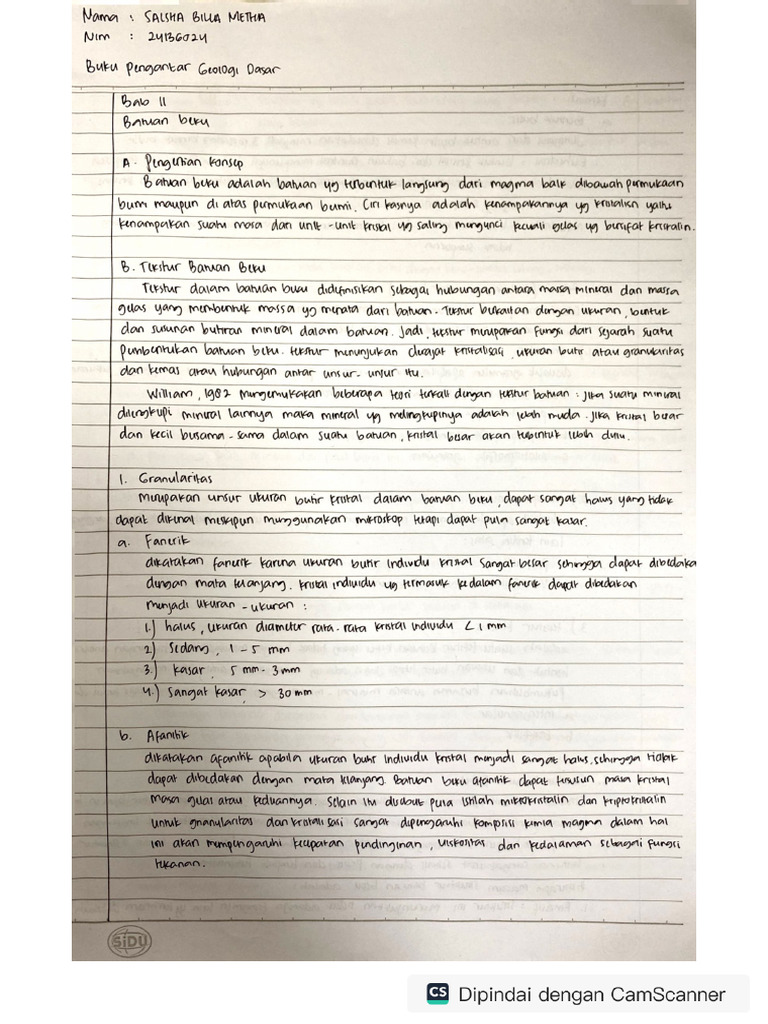 Nama : SALSHA BILLA METHA
Nim : 24136024
Buku Pengantar Geologi Dasar
Bab II
Batuan beku
A. Pengertian Konsep
Batuan beku adalah batuan yg terbentuk langsung dari magma baik dibawah permukaan
bumi maupun di atas permukaan bumi. Ciri kasnya adalah kenampakannya yg kristalin yaitu
kenampakan suatu masa dari unit-unit kristal yg saling mengunci kecuali gelas yg bersifat kristalin.
B. Tekstur Batuan Beku
Tekstur dalam batuan beku didefinisikan sebagai hubungan antara massa mineral dan massa
gelas yang membentuk massa yg merata dari batuan. Tekstur berkaitan dengan ukuran, bentuk
dan susunan butiran mineral dalam batuan. Jadi, tekstur merupakan fungsi dari sejarah suatu
pembentukan batuan beku. tekstur menunjukan derajat kristalisasi, ukuran butir atau granularitas
dan kemas atau hubungan antar unsur-unsur itu.
William, 1982 mengemukakan beberapa teori terkait dengan tekstur batuan : Jika suatu mineral
dilengkupi mineral lainnya maka mineral yg melingkupinya adalah lebih muda. Jika kristal besar
dan kecil bersama-sama dalam suatu batuan, kristal besar akan terbentuk lebih dulu.
1. Granularitas
merupakan unsur ukuran butir kristal dalam batuan beku, dapat sangat halus yang tidak
dapat dikenal meskipun menggunakan mikroskop tetapi dapat pula sangat kasar.
a. Fanerik
dikatakan fanerik karena ukuran butir individu kristal sangat besar sehingga dapat dibedaka
dengan mata telanjang. kristal individu yg termasuk kedalam fanerik dapat dibedakan
menjadi ukuran-ukuran :
1.) halus, ukuran diameter rata-rata kristal individu < 1 mm
2) Sedang, 1-5 mm
3.) kasar, 5 mm-3mm
4.) sangat kasar, > 30 mm
b. Afanitik
dikatakan afanitik apabila ukuran butir individu kristal menjadi sangat halus, sehingga tidak
dapat dibedakan dengan mata telanjang. Batuan beku afanitik dapat tersusun masa kristal
masa gelas atau keduannya. Selain itu disebut pula istilah mikrokristalin dan kriptokristalin
untuk gnanularitas dan kristalisasi sangat dipengaruhi komposisi kimia magma dalam hal
ini akan mempengaruhi kecepatan pendinginan, viskositas dan kedalaman sebagai fungsi
tekanan.
SiDU
CS Dipindai dengan CamScanner